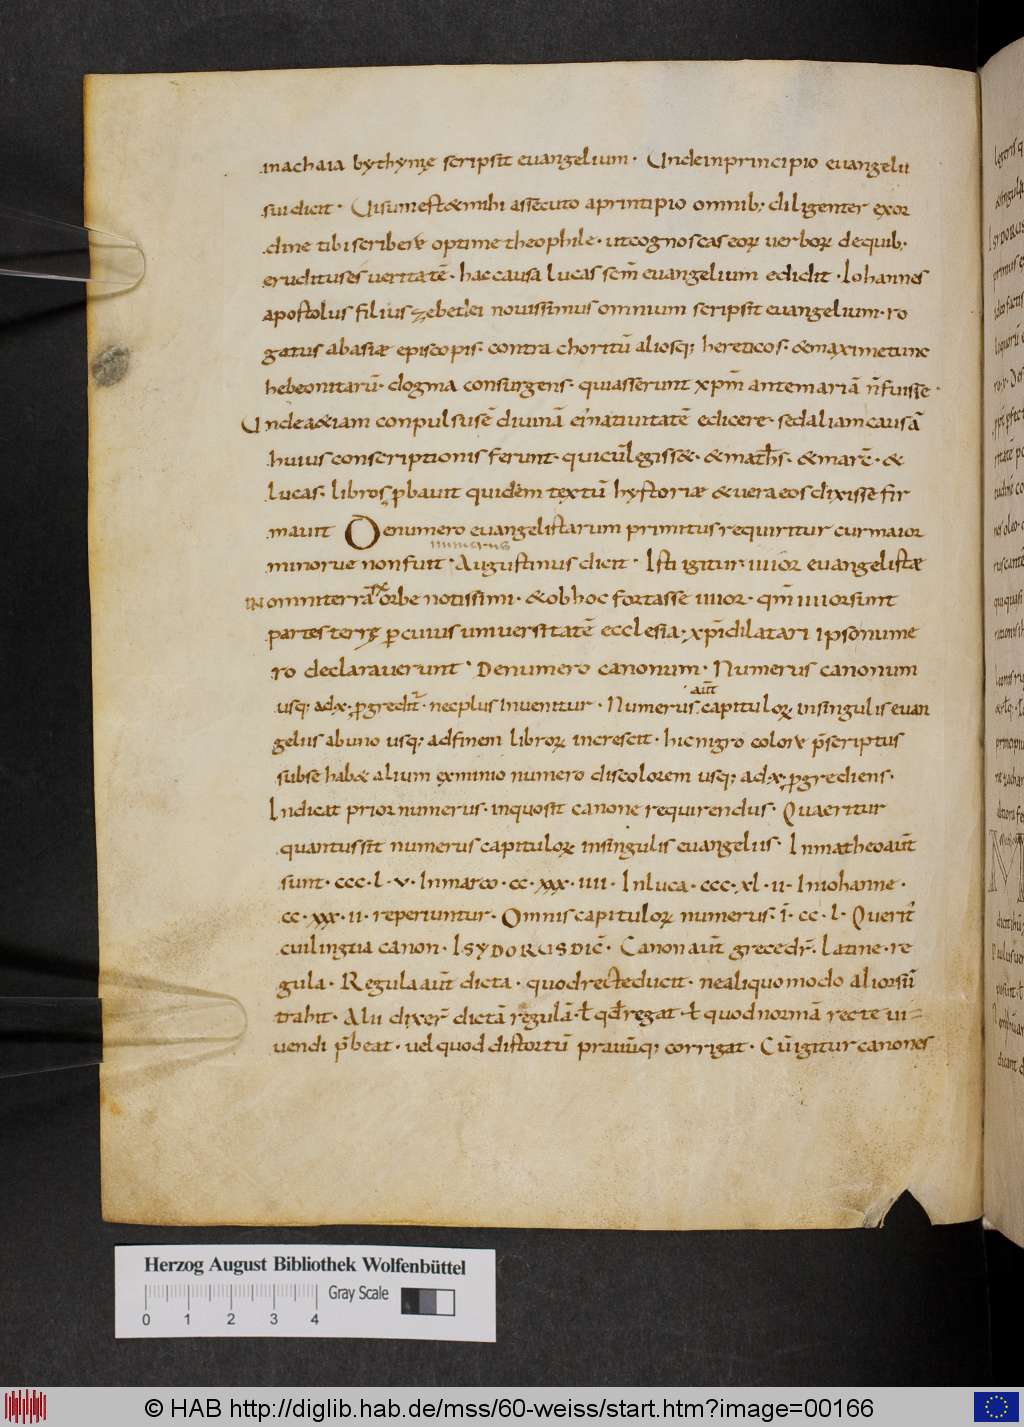 inachaia bythynię scripsit euangelium· Undeinprincipio euangelii
suidicit· Uisumest&mihi assecuto aprintipio omnib; diligenter exor
dine tibiscribere optime theophile· utcognoscas eoꝝ uerboꝝ dequib;
erudituses ueritatē· haccausa lucas sem̄ euangelium edidit· Iohannes
apostolus filius zebedei nouissimus omnium scripsit euangelium· ro
gatus abasiæ episcopis· contra chorītū aliosq; hereticos· &maximetunc
hebeonitarū· dogma consurgens· quiasserunt xp̄m antemariā n̄fuisse·
Undea&iam conpulsusē diuinā ei natiuitatē edicere· sedaliamcausā
huius conscriptionis ferunt· quicūlegiss&· &math̄s· &marē· &
lucas· libros p̱bauit quidēm textū hystoriæ &uera eos dixisse fir
mauit Denumero euangelistarum primitus requiritur curmaior
numerus
minorue nonfuit· Augustinus dicit· Isti igitur· iiiior euangelistæ
INomniterrarū orbe notissimi· &obhoc fortasse iiiior· qm̄ iiiiorsunt
partesterrę ꝑcuius uniuersitatē ecclesia· xp̄idilatari ipsonume
ro declarauerunt· Denumero canonum· Numerus canonum
aut̄
usq; ad·x· ꝓgredit̄· necplus inuenitur· Numerus capituloꝝ insingulis euan
geliis abuno usq; adfinem libroꝝ increscit· hicnigro colore p̄scriptus
subse hab& alium exminio numero discolorem usq; ad·x· ꝓgrediens·
Indicat prior numerus· inquosit canone requirendus· Quaeritur
quantussit numerus capituloꝝ insingulis euangeliis· Inmatheoaut̄
sunt· ccc·l·v· Inmarco· cc·xxx·iiii· Inluca· ccc·xl·ii· Iniohanne·
cc·xxx·ii· reperiuntur· Omnis capituloꝝ numerus· ī· cc·l· Querit̄
cuilingtia canon· ISYDORUS DIC̄· Canon aut̄ grecedr̄· Latine· re
gula· Regula aut̄ dicta· quodrecteducit· nealiquomodo aliorsū
trahit· Alii dixer̄ dictā regulā· ł qd̄regat· ł quodnormā recte ui
uendi p̄beat· uel quod distortū prauūq; corrigat· Cūigitur canones
Herzog August Bibliothek Wolfenbüttel
Gray Scale
0 1 2 3 4
© HAB http://diglib.hab.de/mss/60-weiss/start.htm?image=00166